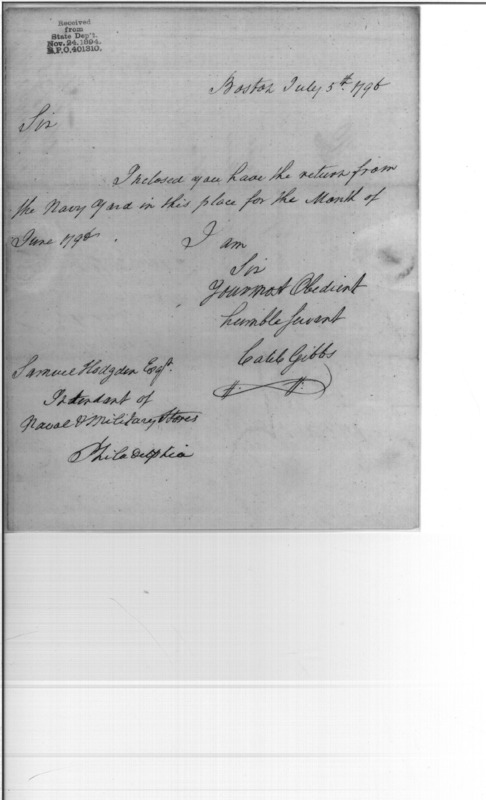 Received
from
State Dep't.
Nov. 24. 1894.
R.P.O. 401310.
Boston July 5th. 1796
Sir
Inclosed you have the return from
the Navy Yard in this place for the Month of
June 1796.
I am
Sir
Your most Obedient
humble Servant
Caleb Gibbs
Samuel Hodgden Esqr.
Intendant of
Naval & Military Stores
Philadelphia